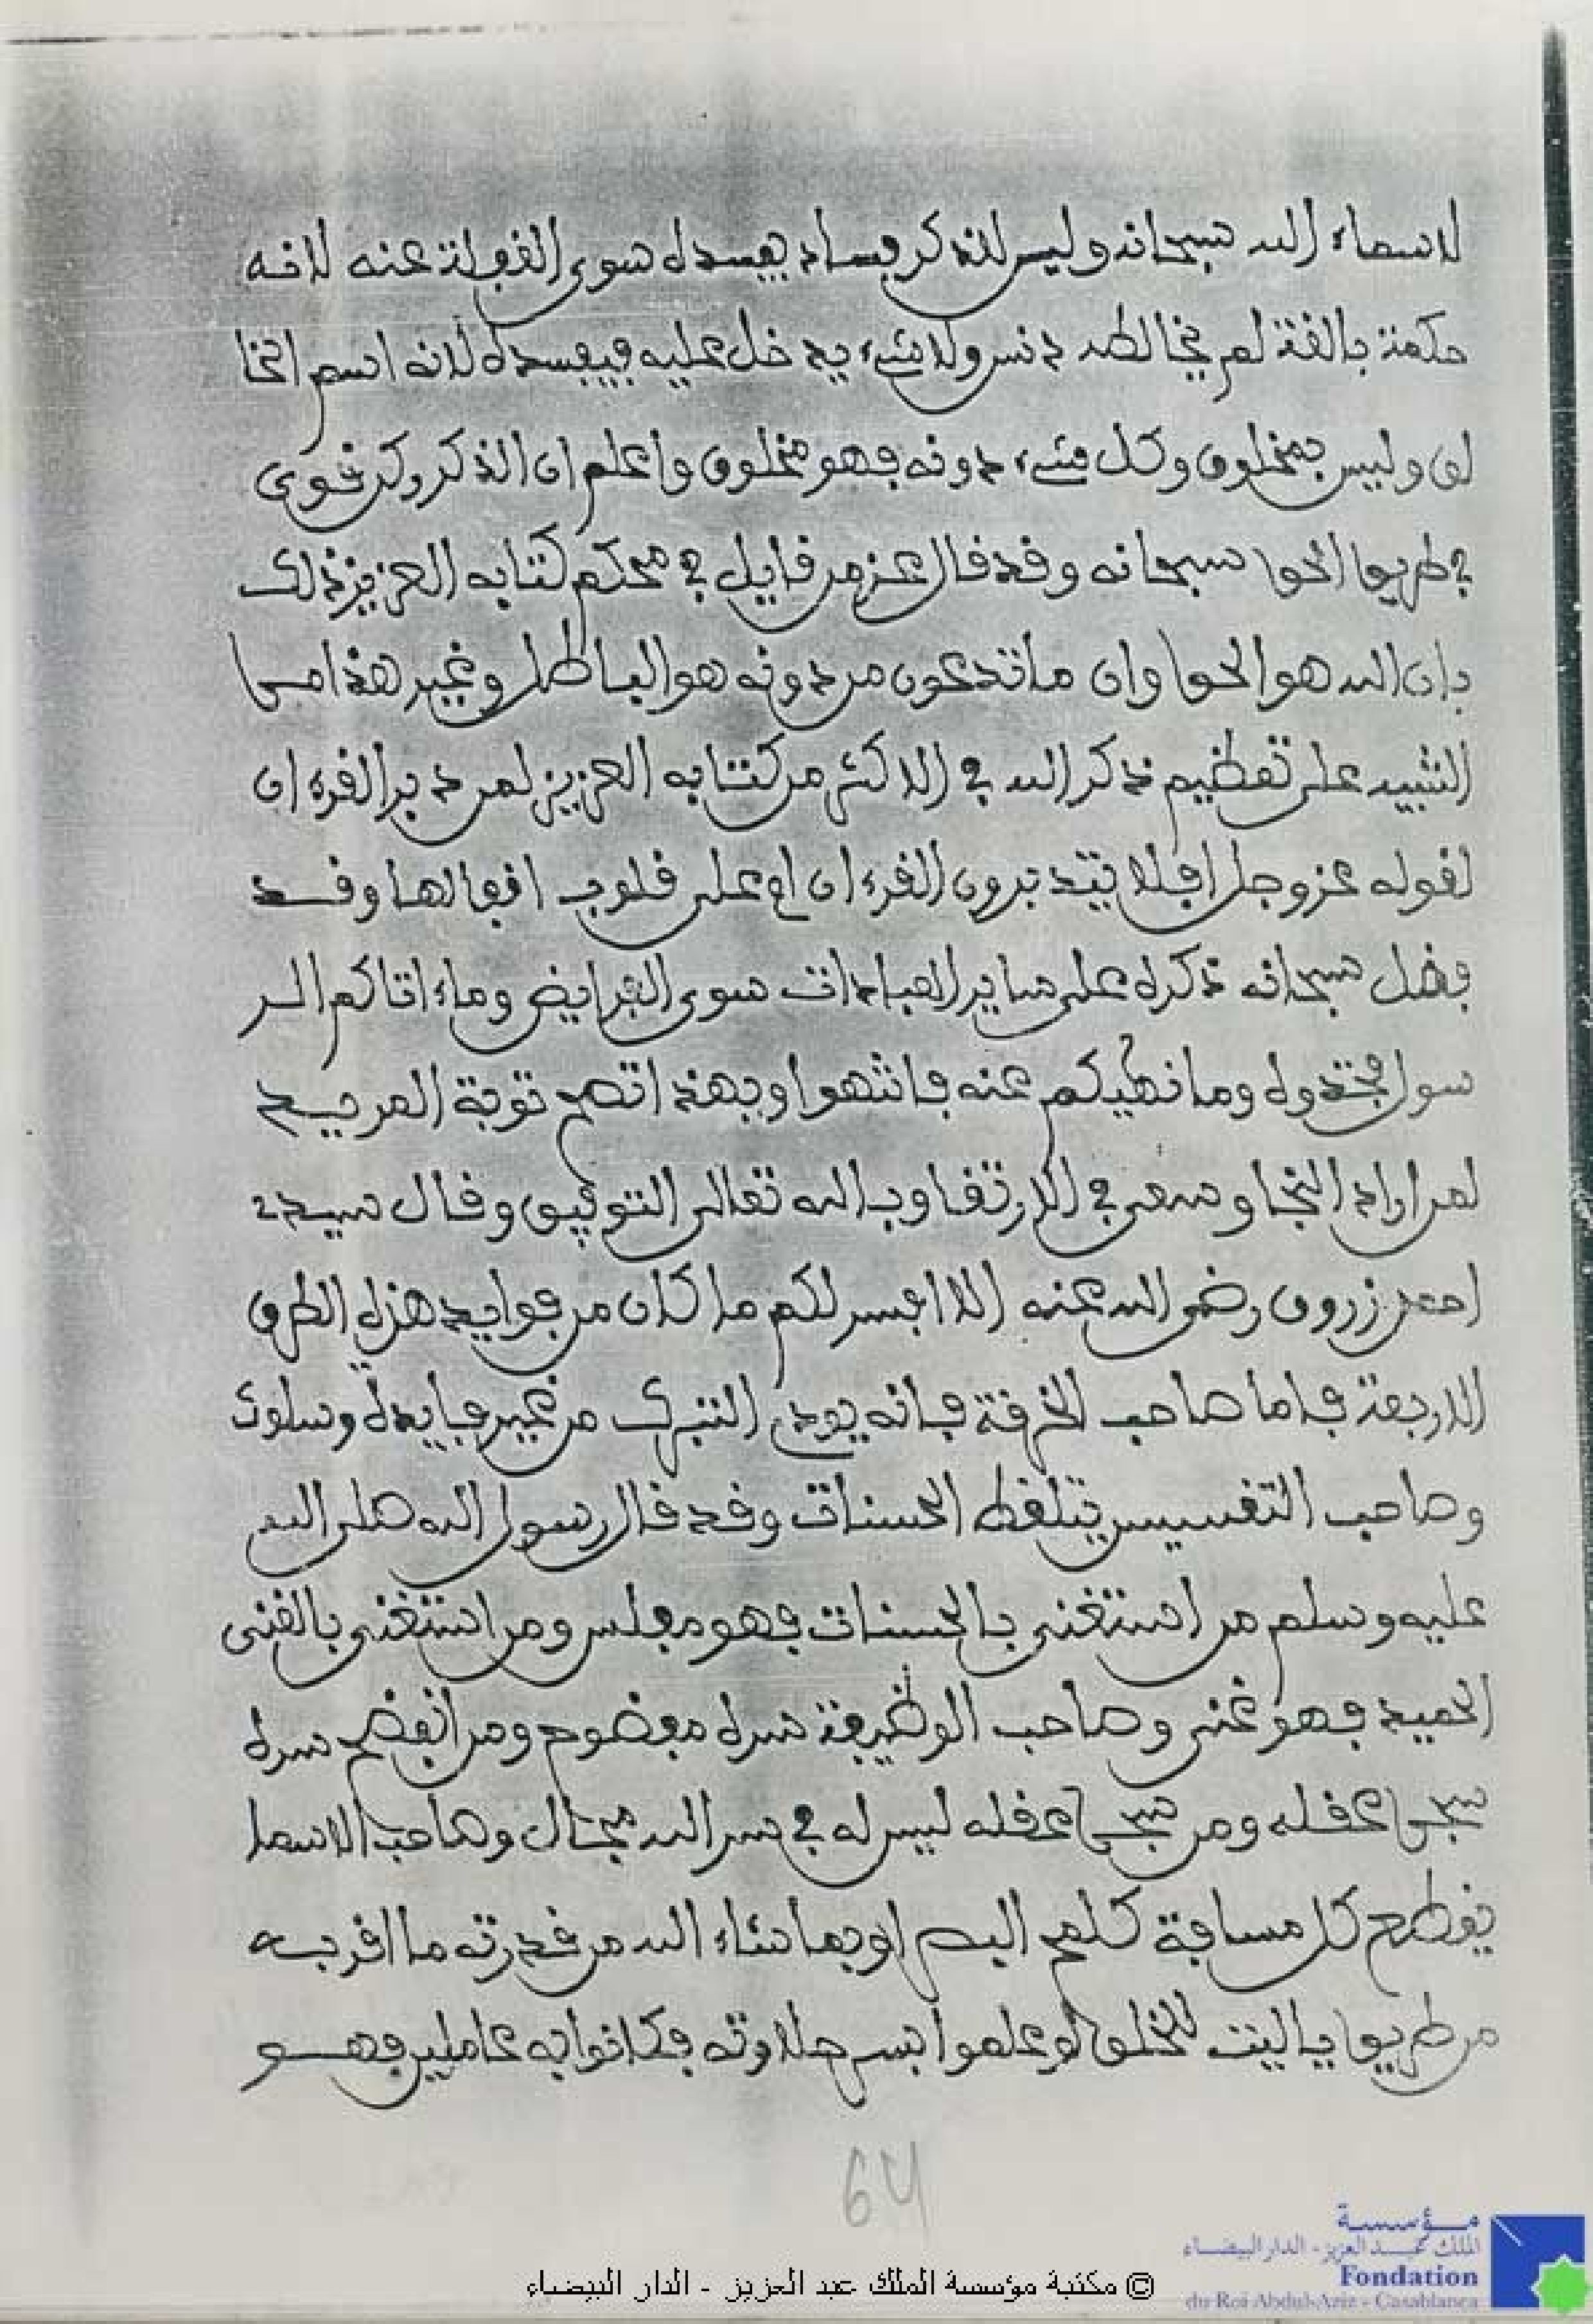 لاسماء الله سبحانه وليس للذكر فساد يفسده سوى الغفولة عنه لانه
حكمة بالغة لم يخالطه دنس ولا شيء يدخل عليه فيفسده لانه اسم الخا
لق وليس بمخلوق وكل شيء دونه فهو مخلوق واعلم ان الذكر ركن قوي
في طريق الحق سبحانه وقد قال عز من قايل في محكم كتابه العزيز ذلك
بان الله هو الحق وان ما تدعون من دونه هو الباطل وغير هذا مما
التنبيه على تعظيم ذكر الله في الاكثر من كتابه العزيز لمن دبر القرءان
لقوله عز وجل افلا يتدبرون القرءان ام على قلوب اقفالها وقد
فضل سبحانه ذكره على ساير العبادات سوى الفرايض وماءاتاكم الر
سول فخذوه وما نهيكم عنه فانتهوا وبهذا تصح توبة المريد
لمن اراد النجا وسعى في الارتقا وبالله تعالى التوفيق وقال سيدي
احمد زروق رضي الله عنه الا افسر لكم ما كان من فوايد هذه الطرق
الاربعة فاما صاحب الخرقة فانه يودي التبرك من غير فايدة وسلوك
وصاحب التفسير يتلفظ الحسنات وقد قال رسول الله صلى الله
عليه وسلم من استغنى بالحسنات فهو مفلس ومن استغنى بالغنى
الحميد فهو غني وصاحب الوظيفة سره مفضوح ومن انفضح سره
سجى عقله ومن سجى عقله ليس له في سر الله مجال وصاحب الاسما
يقطع كل مسافة كلمح البصر او بما شاء الله من قدرته ما اقربه
من طريق يا ليت للخلق لو علموا بسر حلاوته فكانوا به عاملين فهو
64
مؤسسة
الملك عبد العزيز - الدار البيضاء
Fondation
du Roi Abdul-Aziz - Casablanca
© مكتبة مؤسسة الملك عبد العزيز - الدار البيضاء